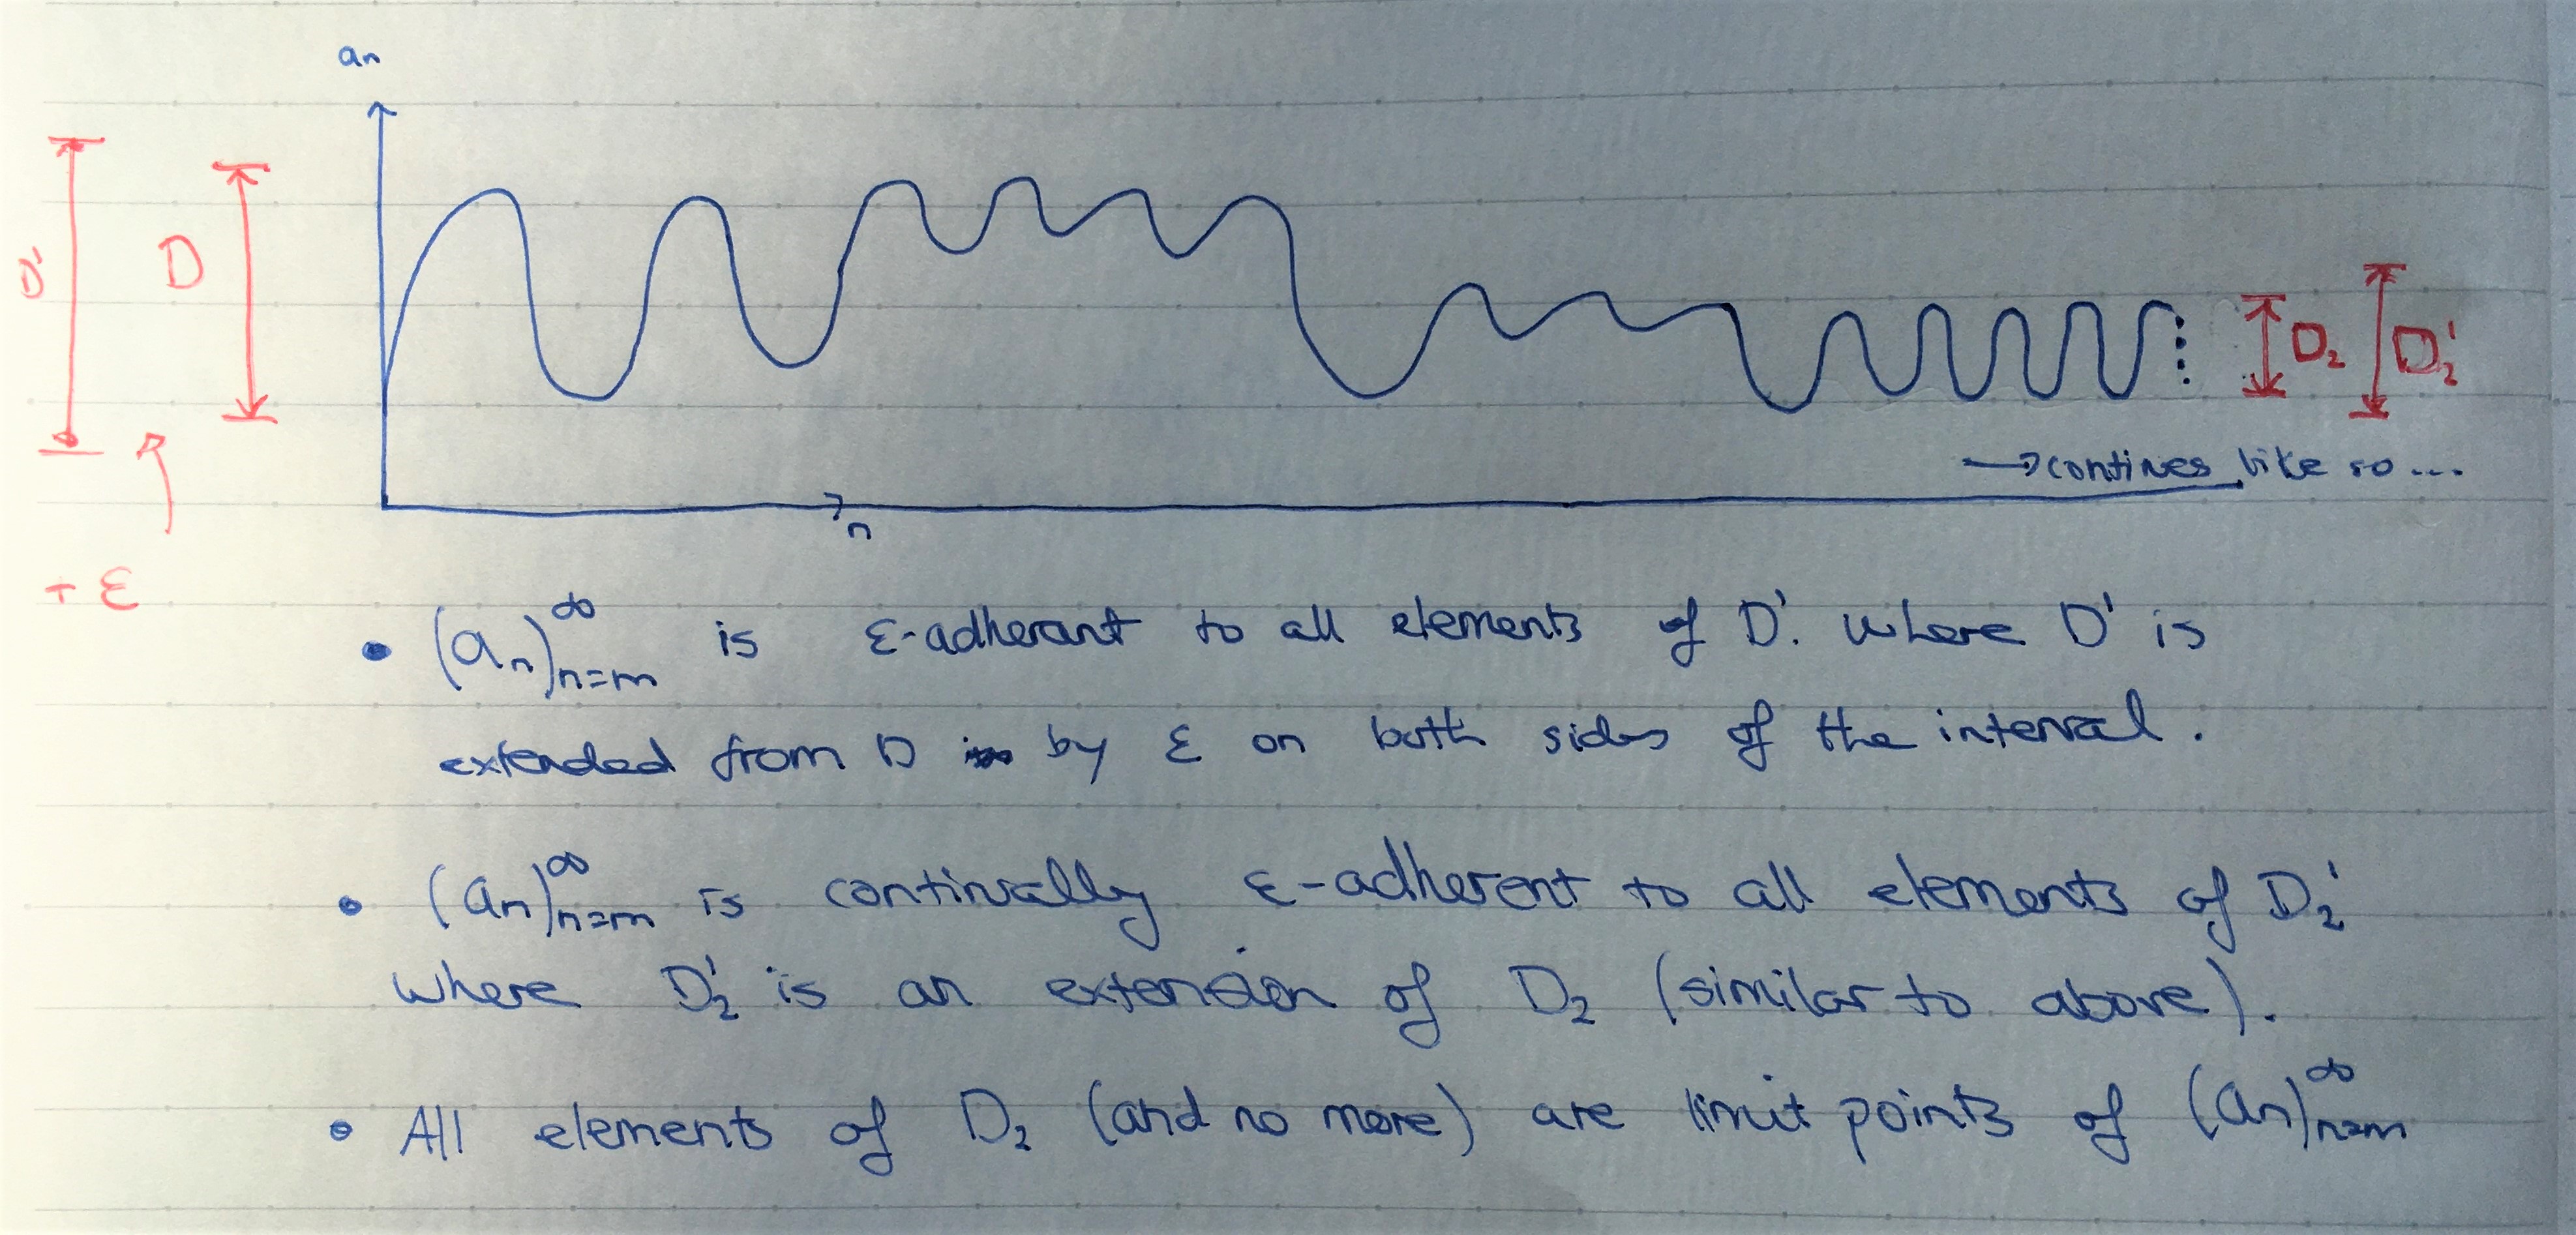 an
D'
D
D₂
D₂'
→ contines like so...
n
+ ε
• (aₙ)ₙ₌ₘ^∞ is ε-adherant to all elements of D'. where D' is
extended from D by ε on both sides of the interval.
• (aₙ)ₙ₌ₘ^∞ is continually ε-adherent to all elements of D₂'
where D₂' is an extension of D₂ (similar to above).
• All elements of D₂ (and no more) are limit points of (aₙ)ₙ₌ₘ^∞